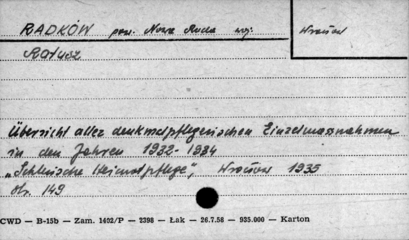 RADKÓW pow. Nowa Ruda woj: Wrocław
Ratusz
Übersicht aller denkmalpflegerischen Einzelmassnahmen
in den Jahren 1932-1934
"Schlesische Heimatpflege", Wrocław 1935
str. 149
CWD — B-15b — Zam. 1402/P — 2398 — Łak — 26.7.58 — 935.000 — Karton